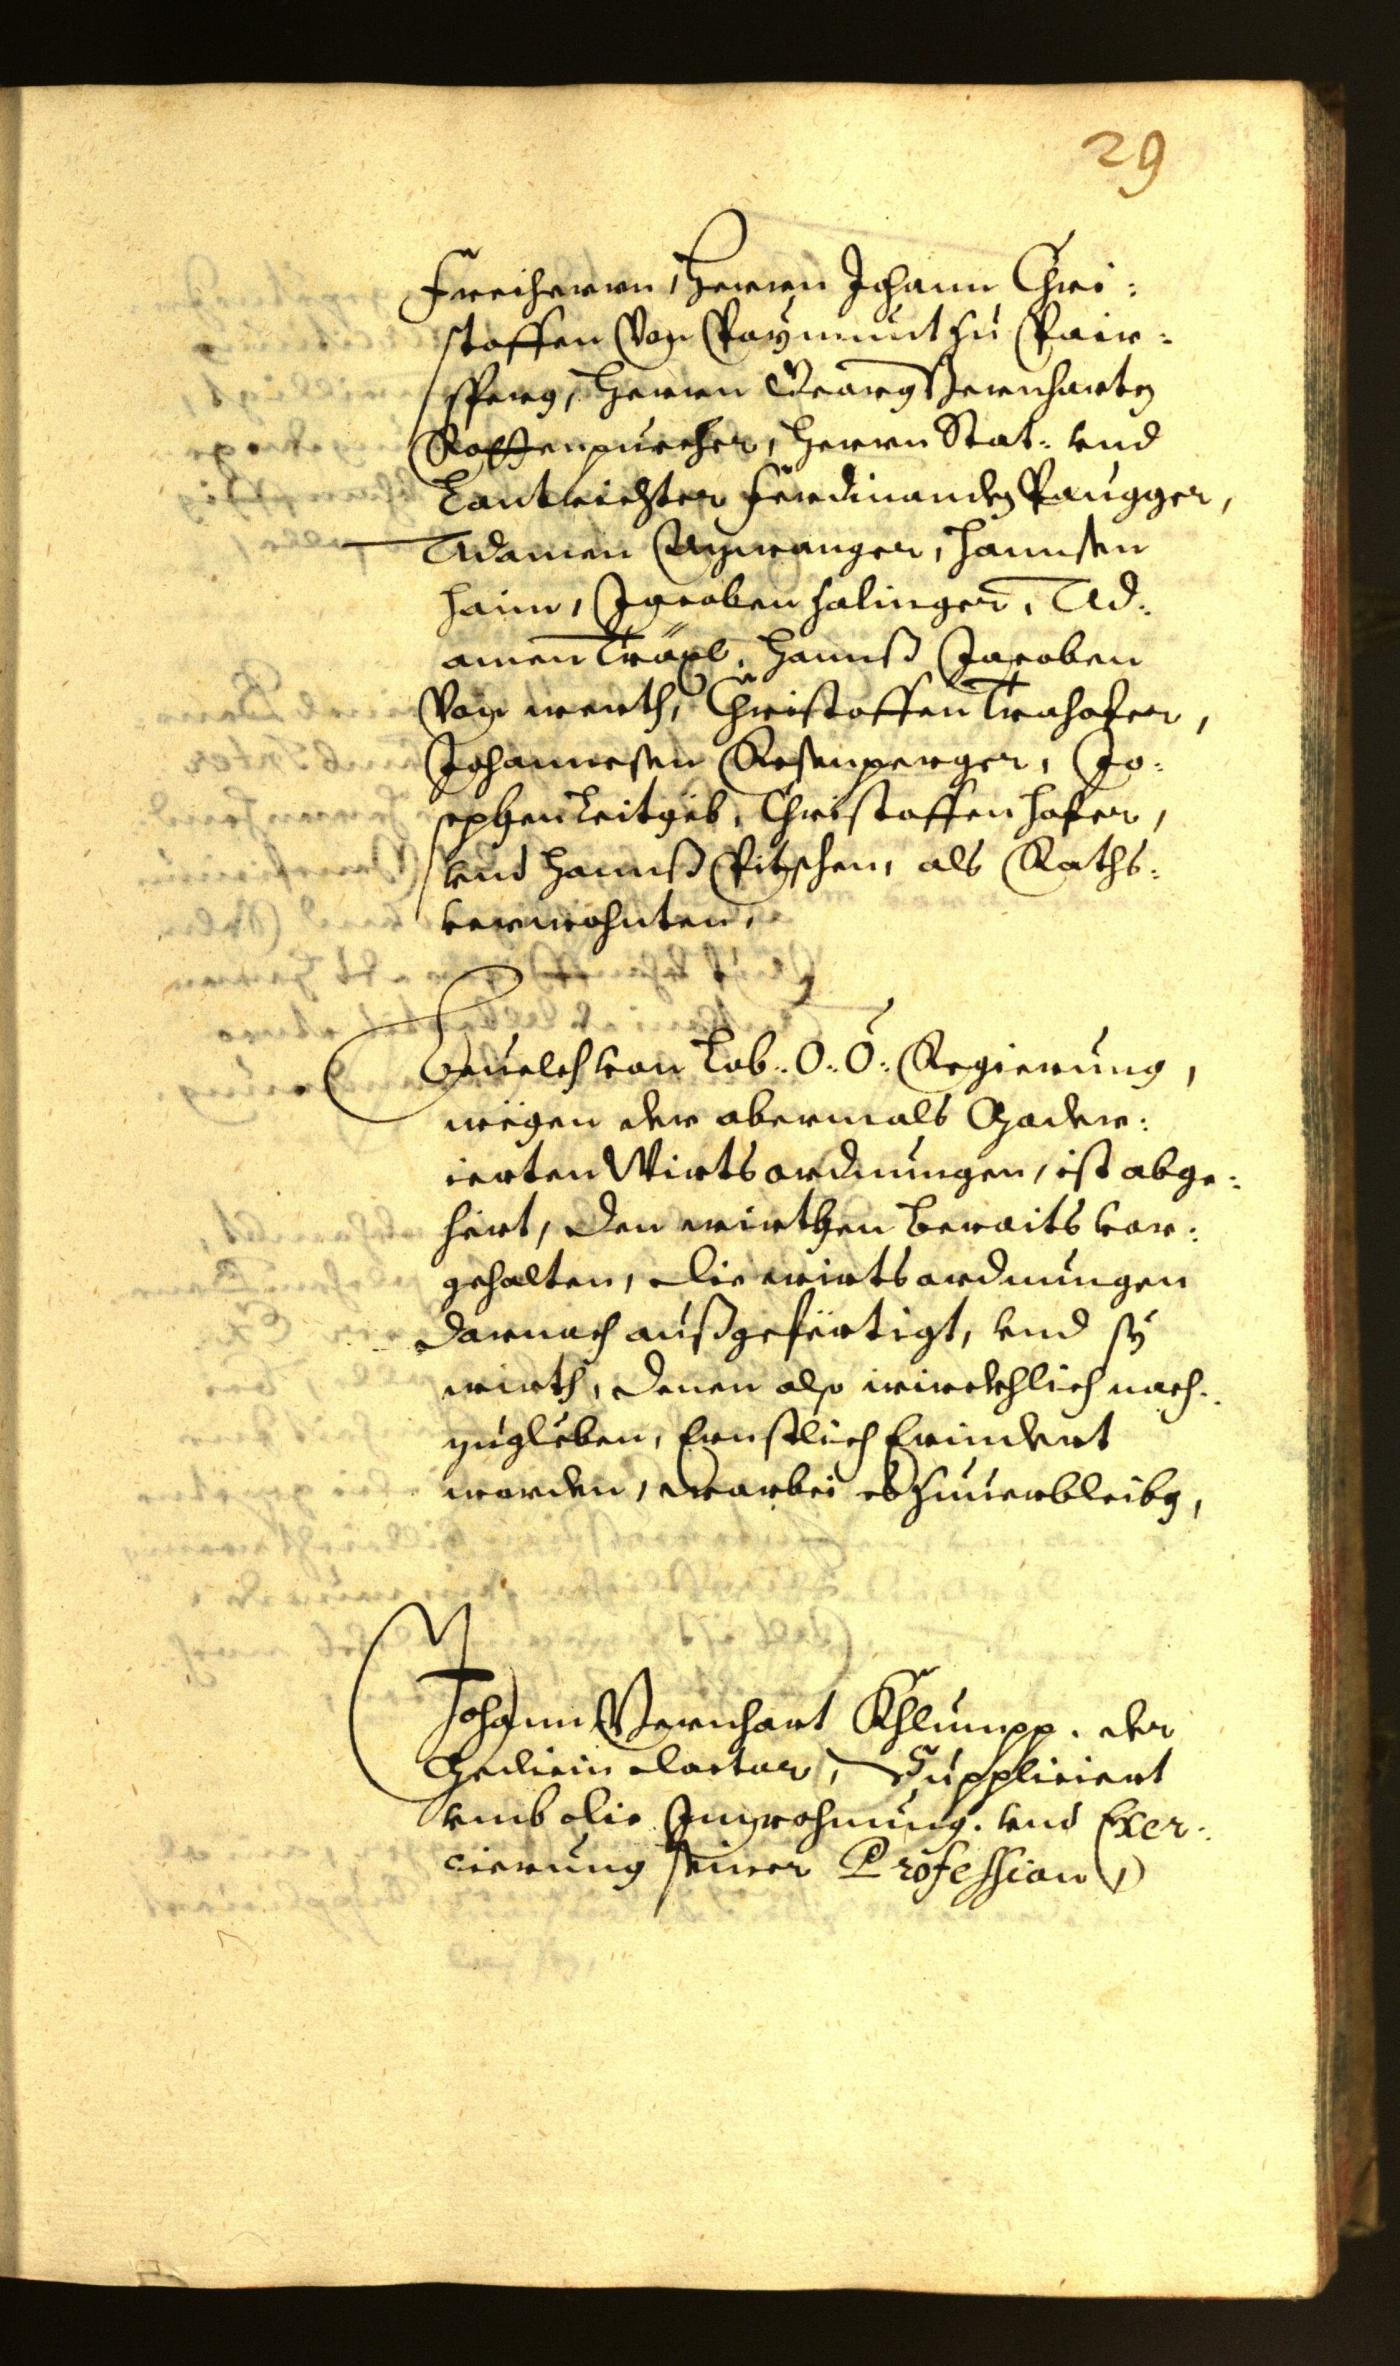 29
Freiherrn, Herrn Johann Chri:
stoffen Von Paÿrmunt zu Pair:
sperg, Herrn Georg Bernharten
Rottenpucher, Herrn Stat: vnd
Lantrichter Ferdinanden Paugger,
Adamen Aÿrwanger, Hannsen
Haim, Jacoben Halinger, Ad:
amen Träxl, Hannß Jacoben
Von werth, Christoffen Trahofer,
Johannesen Rosenperger, Jo:
sephen Leitgeb, Christoffen Hofer,
vnd Hannß Pitschen, als Raths:
verwohnten.
Beuelch von Lob: O: Ö: Regierung,
wegen der abermals Moder:
ierten Wirtsordnungen, ist abge:
hört, den wirthen beraits vor:
gehalten, die wirtsordnungen
darnach außgefertigt, vnd sÿ
wirth, denen also würckhlich nach:
zugleben, Ernstlich Erindert
worden, darbei es zuuerbleiben,
Johann Bernhart Khlumpp. der
Medicin doctor, Suppliciert
vmb die Inwohnung. vnd Exer:
cierung seiner Profession,